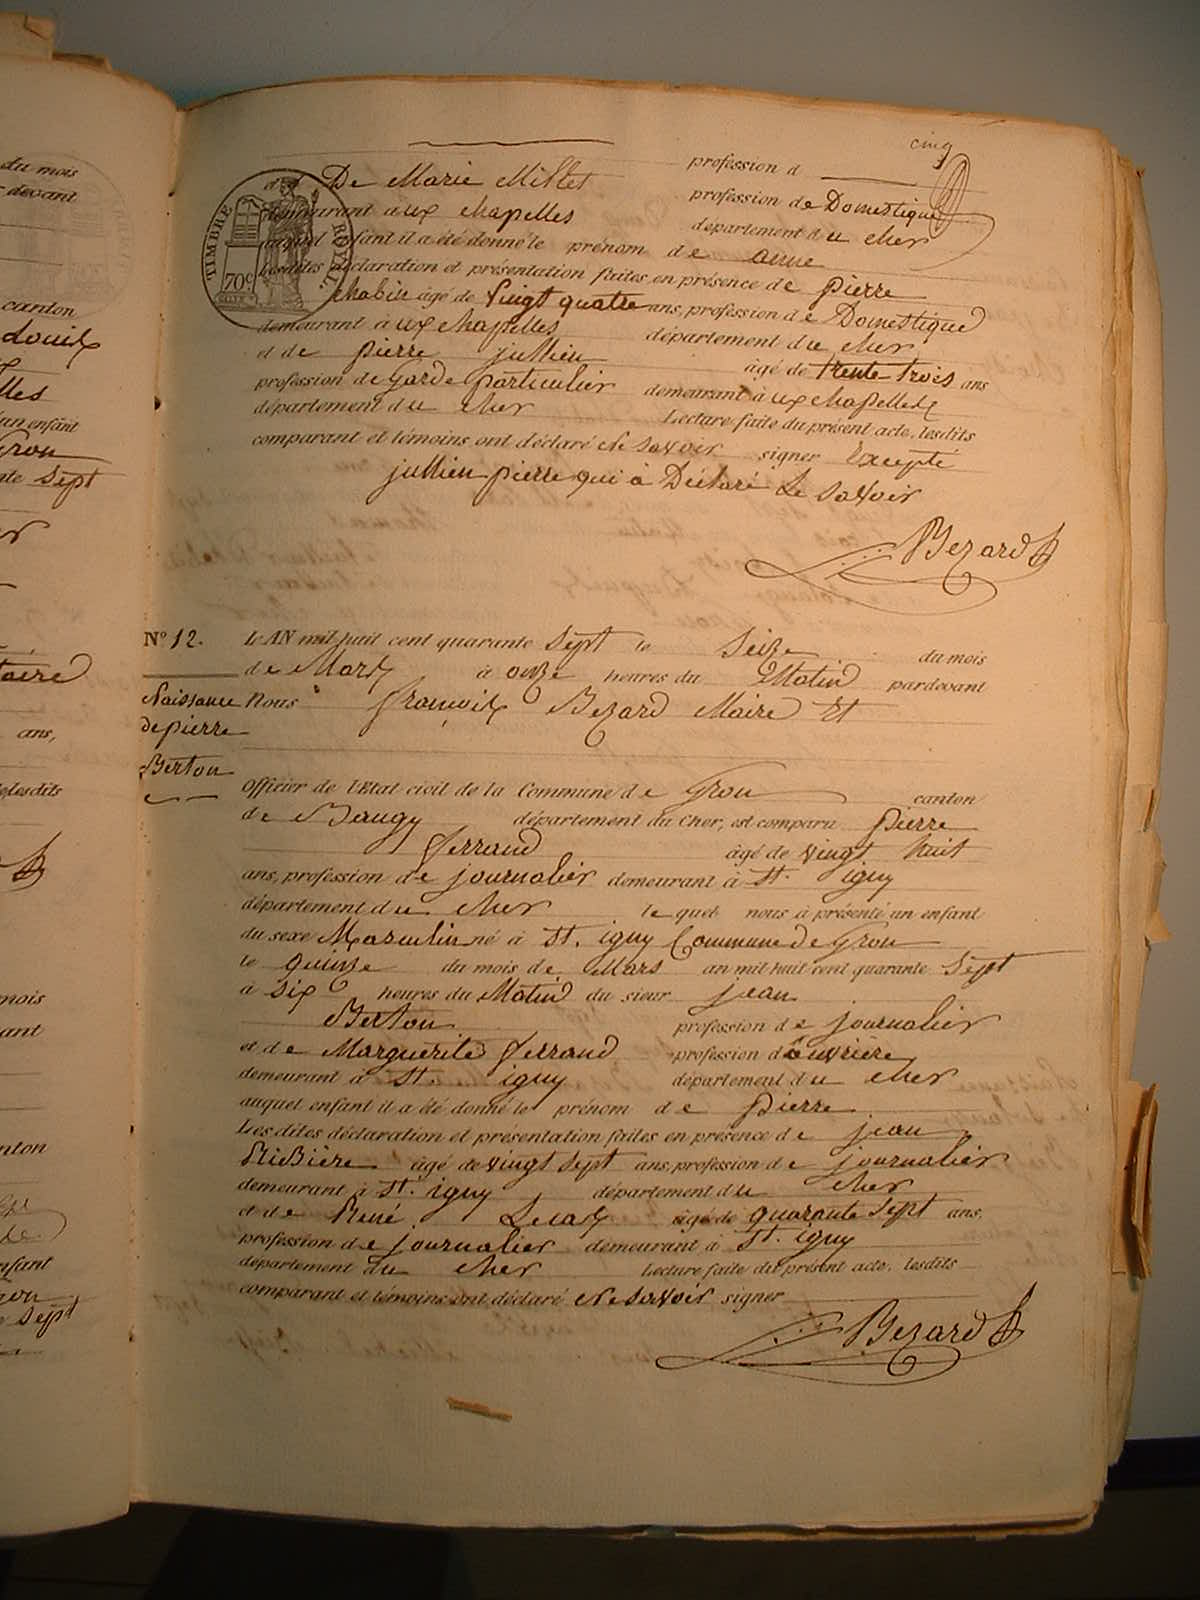 cinq
profession d
et De Marie Millet profession de Domestique
demeurant à ux chapelles département du cher
auquel enfant il a été donné le prénom de anne
Lesdites déclaration et présentation faites en présence de pierre
chabin âgé de Vingt quatre ans, profession de Domestique
demeurant à ux chapelles département du cher
et de pierre jullien âgé de trente trois ans
profession de Garde particulier demeurant à ux chapelles
département du cher Lecture faite du présent acte, lesdits
comparant et témoins ont déclaré Ne savoir signer Excepté
jullien pierre qui à Déclaré Le savoir
Bezard
TIMBRE ROYAL.
70c
N° 12. Le AN mil huit cent quarante Sept le Seize du mois
de Mars à onze heures du Matin pardevant
Naissance Nous françois Bezard Maire Et
de pierre
Berton
Officier de l'Etat civil de la Commune de Gron canton
de Baugy département du Cher, est comparu pierre
ferrand âgé de vingt huit
ans, profession de journalier demeurant à St. igny
département du cher le quel nous à présenté un enfant
du sexe Masculin né à St. igny Commune de Gron
le quinze du mois de Mars an mil huit cent quarante Sept
à six heures du Matin du sieur jean
Berton profession de journalier
et de Marguerite ferrand profession d'ouvrière
demeurant à St. igny département du cher
auquel enfant il a été donné le prénom de pierre
Les dites déclaration et présentation faites en présence de jean
RiBière âgé de vingt sept ans, profession de journalier
demeurant à St. igny département du cher
et de René Lecas âgé de quarante sept ans,
profession de journalier demeurant à St. igny
département du cher Lecture faite du présent acte, lesdits
comparant et témoins ont déclaré Ne savoir signer
Bezard
du mois
devant
canton
un enfant
Gron
Sept
ans,
lesdits
mois
canton
enfant
sept